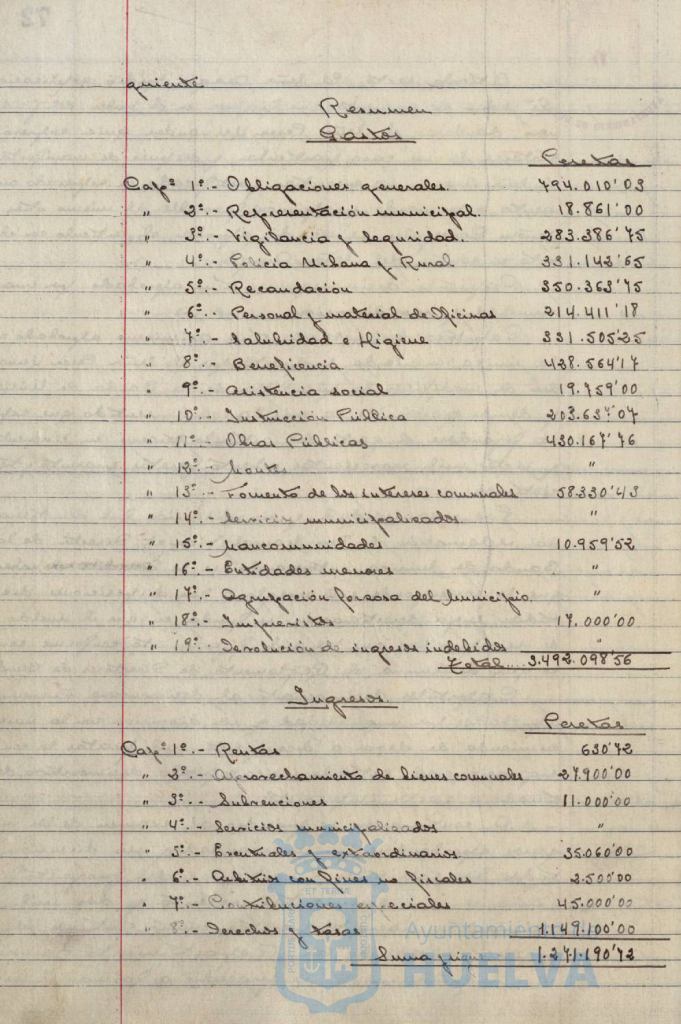 quiente
Resumen
Gastos
Pesetas
Capº 1º.- Obligaciones generales. 794.010'03
" 2º.- Representación municipal. 18.861'00
" 3º.- Vigilancia y seguridad. 283.386'75
" 4º.- Policia Urbana y Rural 331.142'65
" 5º.- Recaudación 350.363'75
" 6º.- Personal y material de Oficinas 214.411'18
" 7º.- Salubridad e Higiene 331.505'25
" 8º.- Beneficencia 428.564'17
" 9º.- Asistencia social 19.759'00
" 10º.- Instrucción Pública 203.637'07
" 11º.- Obras Públicas 430.167'76
" 12º.- Montes "
" 13º.- Fomento de los intereses comunales 58.330'43
" 14º.- Servicios municipalizados. "
" 15º.- Mancomunidades 10.959'52
" 16º.- Entidades menores "
" 17º.- Agrupación forzosa del Municipio. "
" 18º.- Imprevistos 17.000'00
" 19º.- Devolución de ingresos indebidos "
Total... 3.492.098'56
Ingresos.
Pesetas
Capº 1º.- Rentas 630'72
" 2º.- Aprovechamiento de bienes comunales 27.900'00
" 3º.- Subvenciones 11.000'00
" 4º.- Servicios municipalizados "
" 5º.- Eventuales y extraordinarios. 35.060'00
" 6º.- Arbitrios con fines no fiscales 2.500'00
" 7º.- Contribuciones especiales 45.000'00
" 8º.- Derechos y tasas 1.149.100'00
Suma y sigue 1.271.190'72
Ayuntamiento
HUELVA